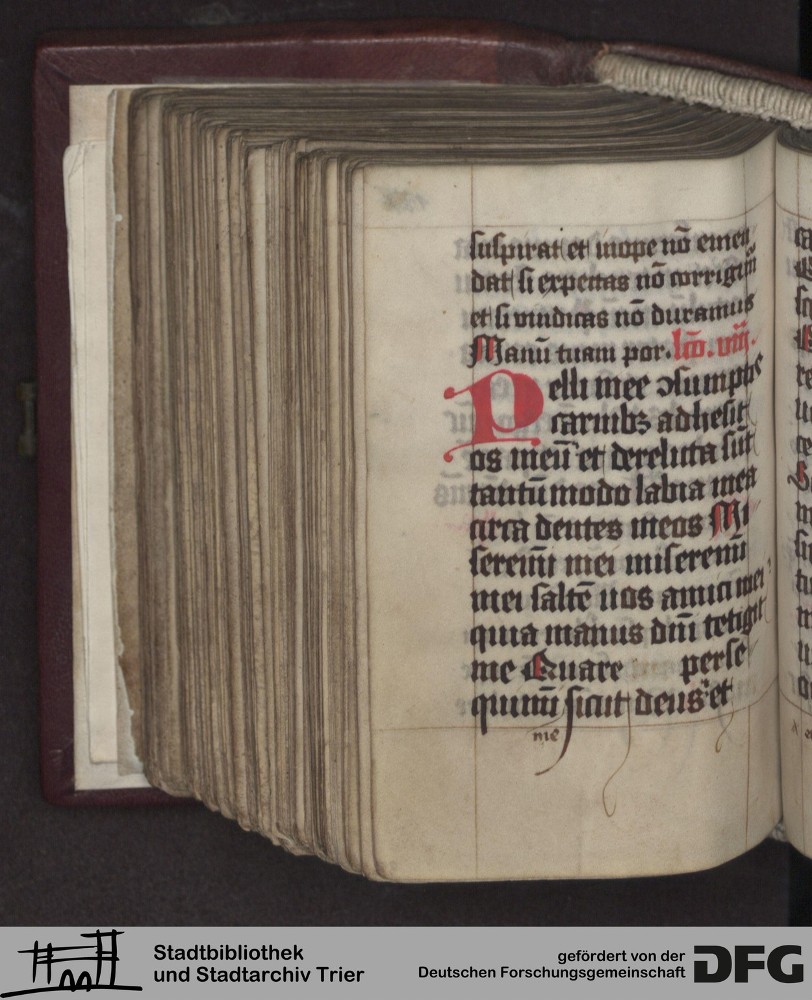 suspirat et inope nō emen
dat si expectas nō corrigim̄
et si vindicas nō duramus
Manū tuam por. lc̄o. viii.
Pelli mee ɔsumptis
carnibꝫ adhesit
os meū et derelicta sūt
tantūmodo labia mea
circa dentes meos Mi
seremī mei miseremī
mei saltē uos amici mei
quia manus dn̄i tetigit
me Quare perse
quimī sicut deus et
me
Stadtbibliothek
und Stadtarchiv Trier
gefördert von der
Deutschen Forschungsgemeinschaft
DFG